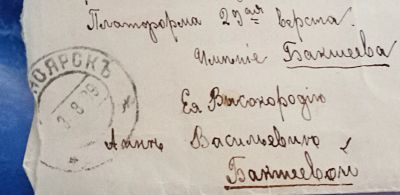 Платформа 23ая верста.
Имѣніе Бакшеева
Ея Высокородію
Аннѣ Васильевнѣ
Бакшеевой
НОЯРСКЪ
3 8 09